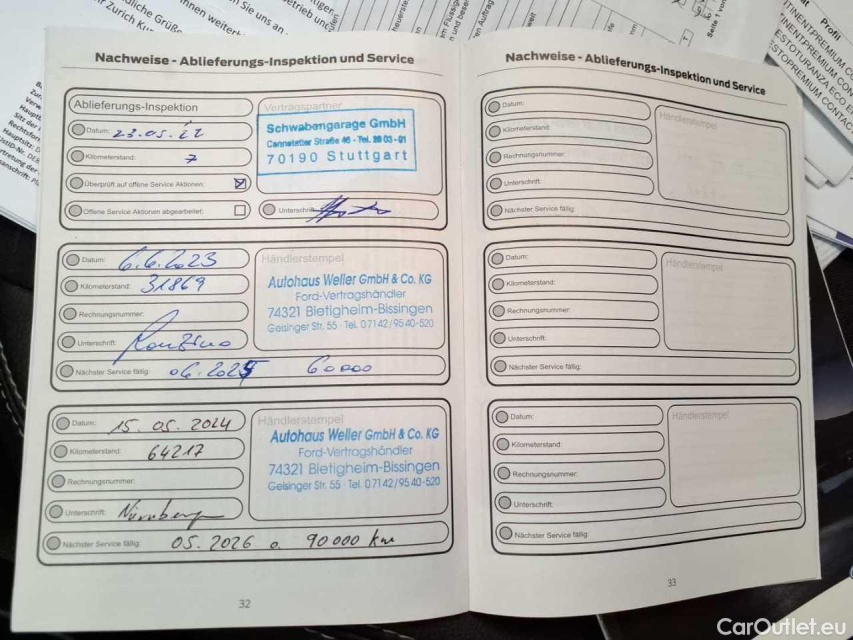 Nachweise - Ablieferungs-Inspektion und Service
Ablieferungs-Inspektion
Datum: 23.05.22
Kilometerstand: 7
Überprüft auf offene Service Aktionen:
Offene Service Aktionen abgearbeitet:
Vertragspartner
Schwabengarage GmbH
Cannstatter Straße 46 - Tel. 28 03-01
70190 Stuttgart
Unterschrift
Datum: 6.6.2023
Kilometerstand: 31869
Rechnungsnummer:
Unterschrift:
Nächster Service fällig: 06.2025 60000
Händlerstempel
Autohaus Weller GmbH & Co. KG
Ford-Vertragshändler
74321 Bietigheim-Bissingen
Geisinger Str. 55 · Tel. 07142/9540-520
Datum: 15.05.2024
Kilometerstand: 64217
Rechnungsnummer:
Unterschrift: Nürnberg
Nächster Service fällig: 05.2026 o. 90 000 km
Händlerstempel
Autohaus Weller GmbH & Co. KG
Ford-Vertragshändler
74321 Bietigheim-Bissingen
Geisinger Str. 55 · Tel. 07142/9540-520
32
Nachweise - Ablieferungs-Inspektion und Service
Datum:
Kilometerstand:
Rechnungsnummer:
Unterschrift:
Nächster Service fällig:
Händlerstempel
Datum:
Kilometerstand:
Rechnungsnummer:
Unterschrift:
Nächster Service fällig:
Händlerstempel
Datum:
Kilometerstand:
Rechnungsnummer:
Unterschrift:
Nächster Service fällig:
Händlerstempel
33
Profil
CarOutlet.eu